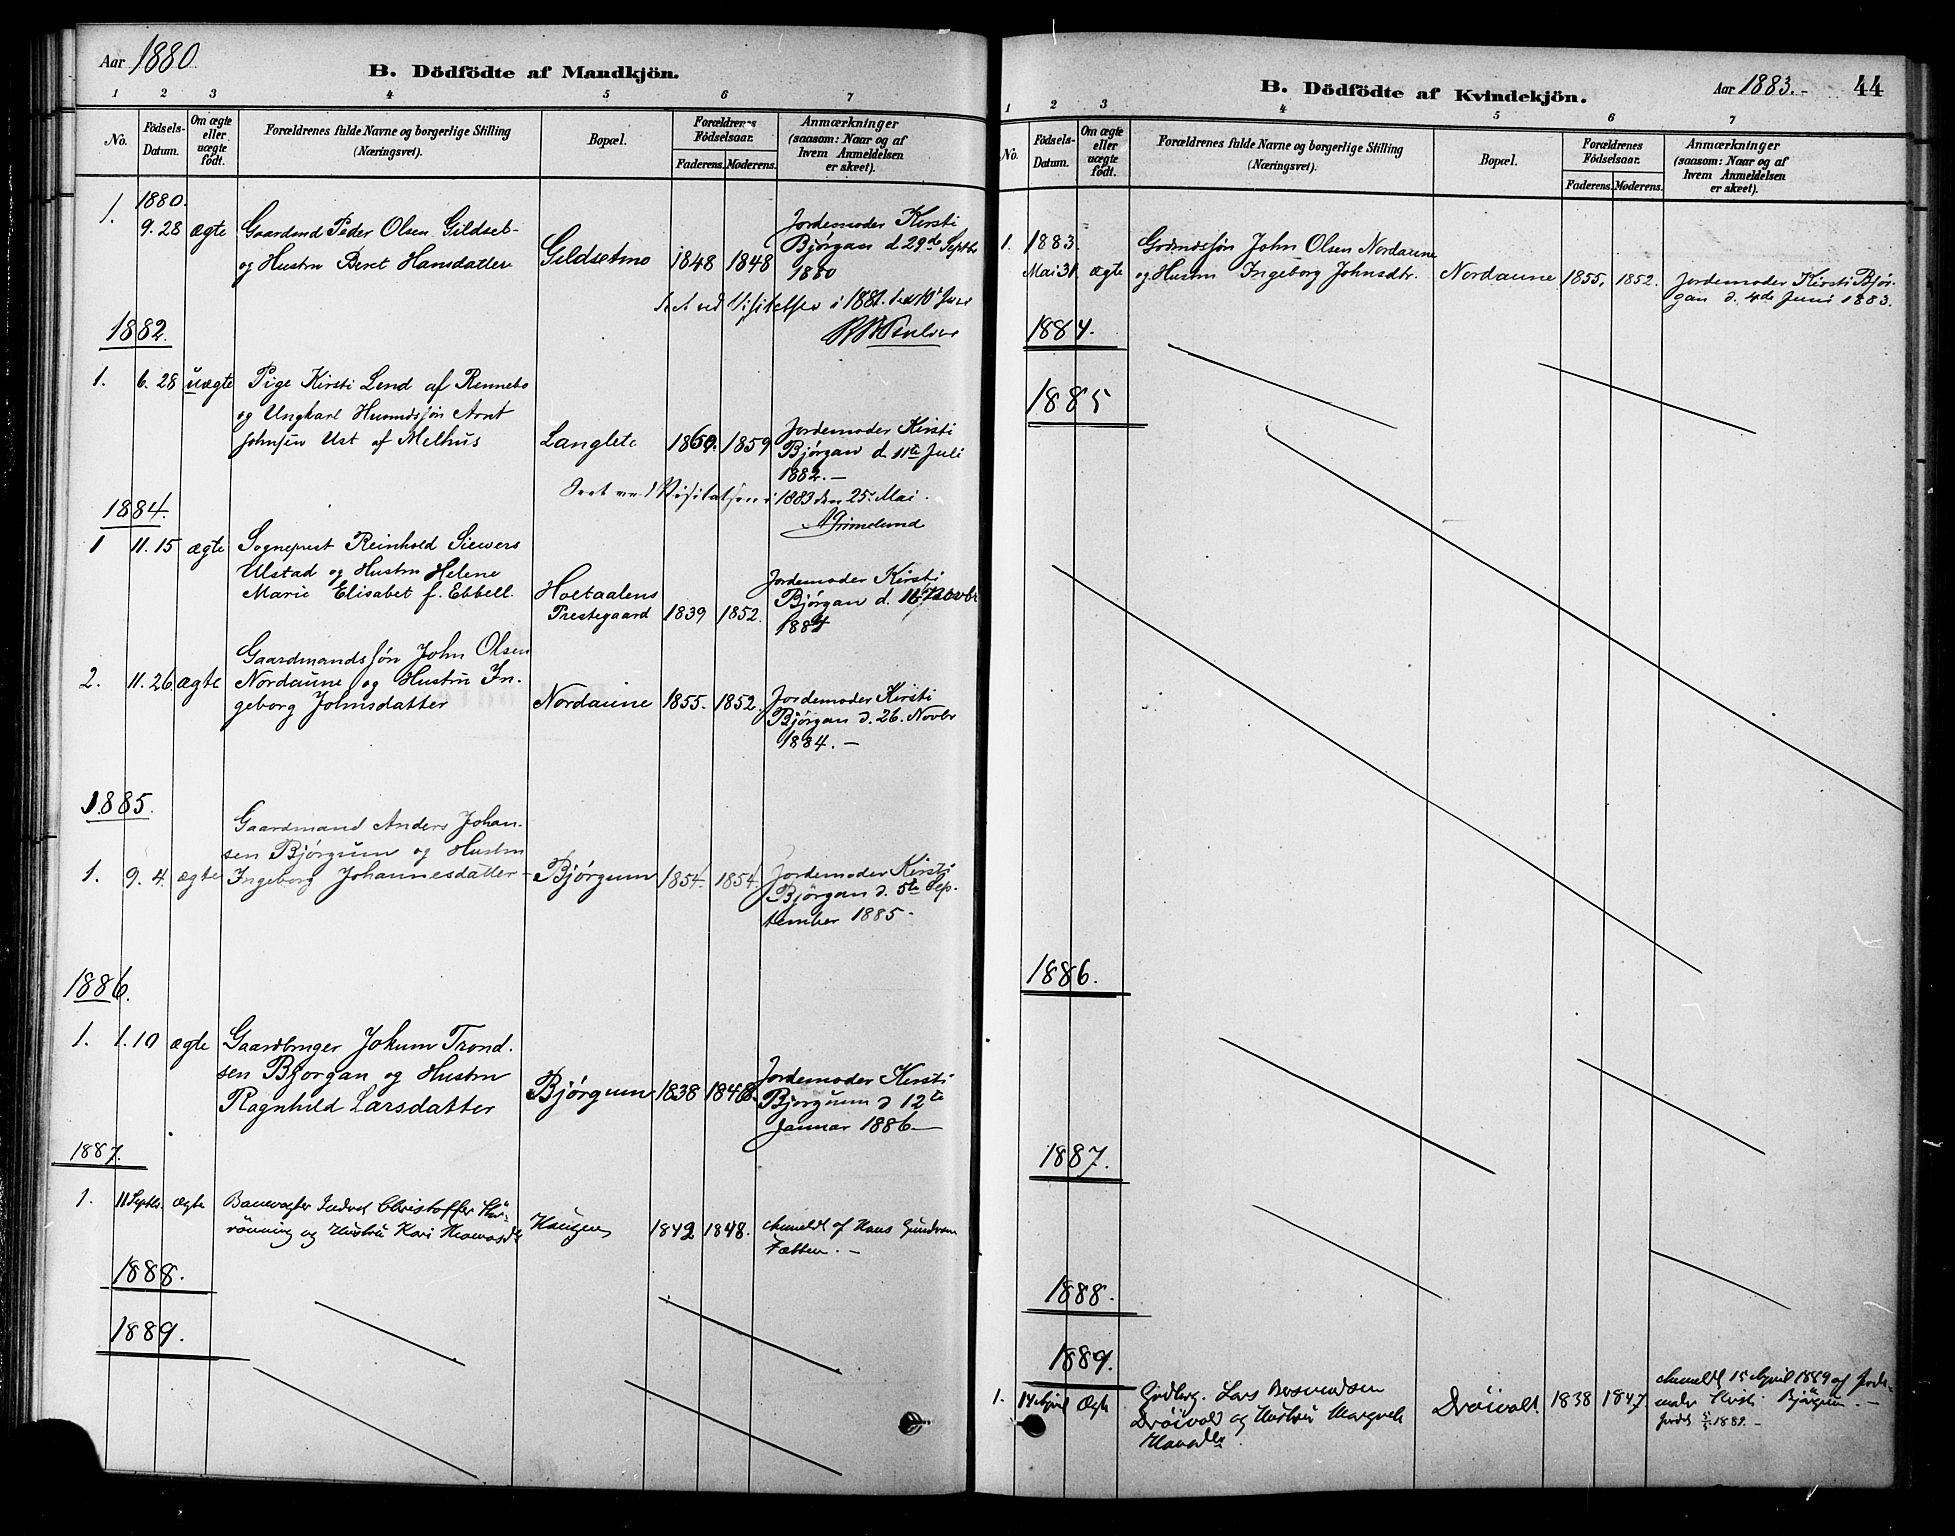 Aar 1880.
B. Dödfödte af Mandkjön.
1 2 3 4 5 6 7
No. Födsels-Datum. Om ægte eller uægte födt. Forældrenes fulde Navne og borgerlige Stilling (Næringsvei). Bopæl. Forældrenes Födselsaar. Faderens. Moderens. Anmærkninger (saasom: Naar og af hvem Anmeldelsen er skeet).
1. 1880.
9. 28 ægte Gaardmd Peder Olsen Gildset-
og Hustru Beret Hansdatter Gildsetmo 1848 1848
Jordemoder Kirsti
Bjørgan d. 29de Septbr
1880
ved Visitatsen i 1881 den
1882.
1. 6. 28 uægte Pige Kirsti Lend af Rennebo
og Ungkarl Husmdssøn Arnt
Johnsen Ust af Melhus Langlete 1860. 1859
Jordemoder Kirsti
Bjørgan d. 11te Juli
1882.-
Seet ved Visitatsen i 1883 den 25. Mai.
AGrimelund
1884.
1 11. 15 ægte Sogneprest Reinhold Siewers
Ulstad og Hustru Helene
Marie Elisabet f. Ebbell. Holtaalens
Prestegaard 1839 1852.
Jordemoder Kirsti
Bjørgan d. 16. Novbr
1884
2. 11. 26 ægte Gaardmandssøn John Olsen
Nordaune og Hustru In-
geborg Johnsdatter Nordaune 1855. 1852.
Jordemoder Kirsti
Bjørgan d. 26. Novbr
1884. -
1885.
1. 9. 4. ægte Gaardmand Anders Johan-
sen Bjørgum og Hustru
Ingeborg Johannesdatter - Bjørgum 1854. 1854.
Jordemoder Kirsti
Bjørgan d. 5te Sep-
tember 1885.
1886.
1. 1. 10 ægte Gaardbruger Jokum Trond-
sen Bjørgan og Hustru
Ragnhild Larsdatter Bjørgum 1838 1848.
Jordemoder Kirsti
Bjørgum d 12te
Januar 1886 -
1887.
1. 11 Septbr. ægte Banevogter Christoffer
rönning og Hustru Kari Haugen 1842 1848.
Anmeldt af Hans
Fætten. -
1888.
1889.
B. Dödfödte af Kvindekjön.
Aar 1883.- 44
1 2 3 4 5 6 7
No. Födsels-Datum. Om ægte eller uægte födt. Forældrenes fulde Navne og borgerlige Stilling (Næringsvei). Bopæl. Forældrenes Födselsaar. Faderens. Moderens. Anmærkninger (saasom: Naar og af hvem Anmeldelsen er skeet).
1. 1883.
Mai 31 ægte Grdmdssøn John Olsen Nordaune
og Hustru Ingeborg Johnsdtr. Nordaune 1855, 1852.
Jordemoder Kirsti Bjør-
gan d. 4de Juni 1883.
1884.
1885
1886.
1887.
1888.
1889.
1. 14 April Ægte Lars Bersvendsen
Dröivold og Hustru Margrete
Dröivold. 1838 1847.
Anmeldt 15 April 1889 af Jorde-
moder Kirsti Bjørgum. -
1889. -